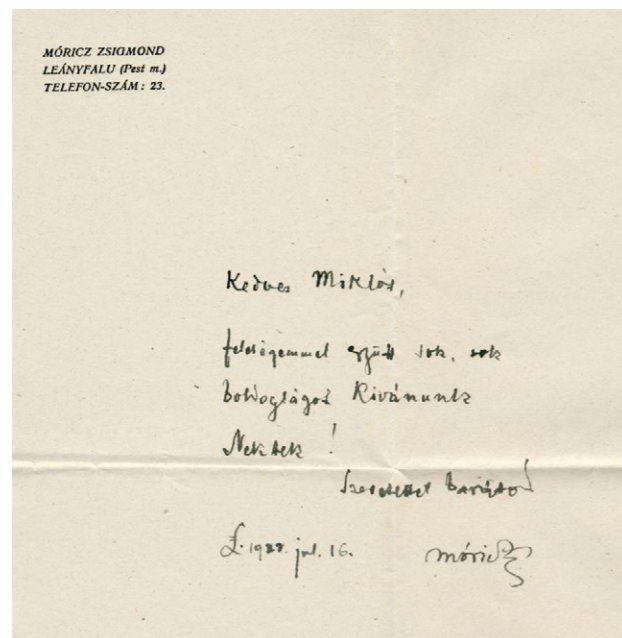 MÓRICZ ZSIGMOND
LEÁNYFALU (Pest m.)
TELEFON-SZÁM: 23.
Kedves Miklós,
feleségemmel együtt sok, sok
boldogságot Kivánunk
Nektek!
Szeretettel barátod
L. jul. 16. Móricz